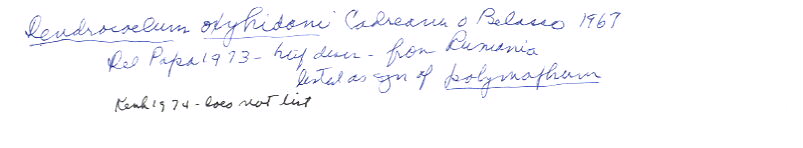 Dendrocoelum oxyhidoni Codreanu o Belasso 1967
Del Papa 1973 - brief descr - from Rumania
listed as syn of polymorphum
Kenk 1974 - does not list